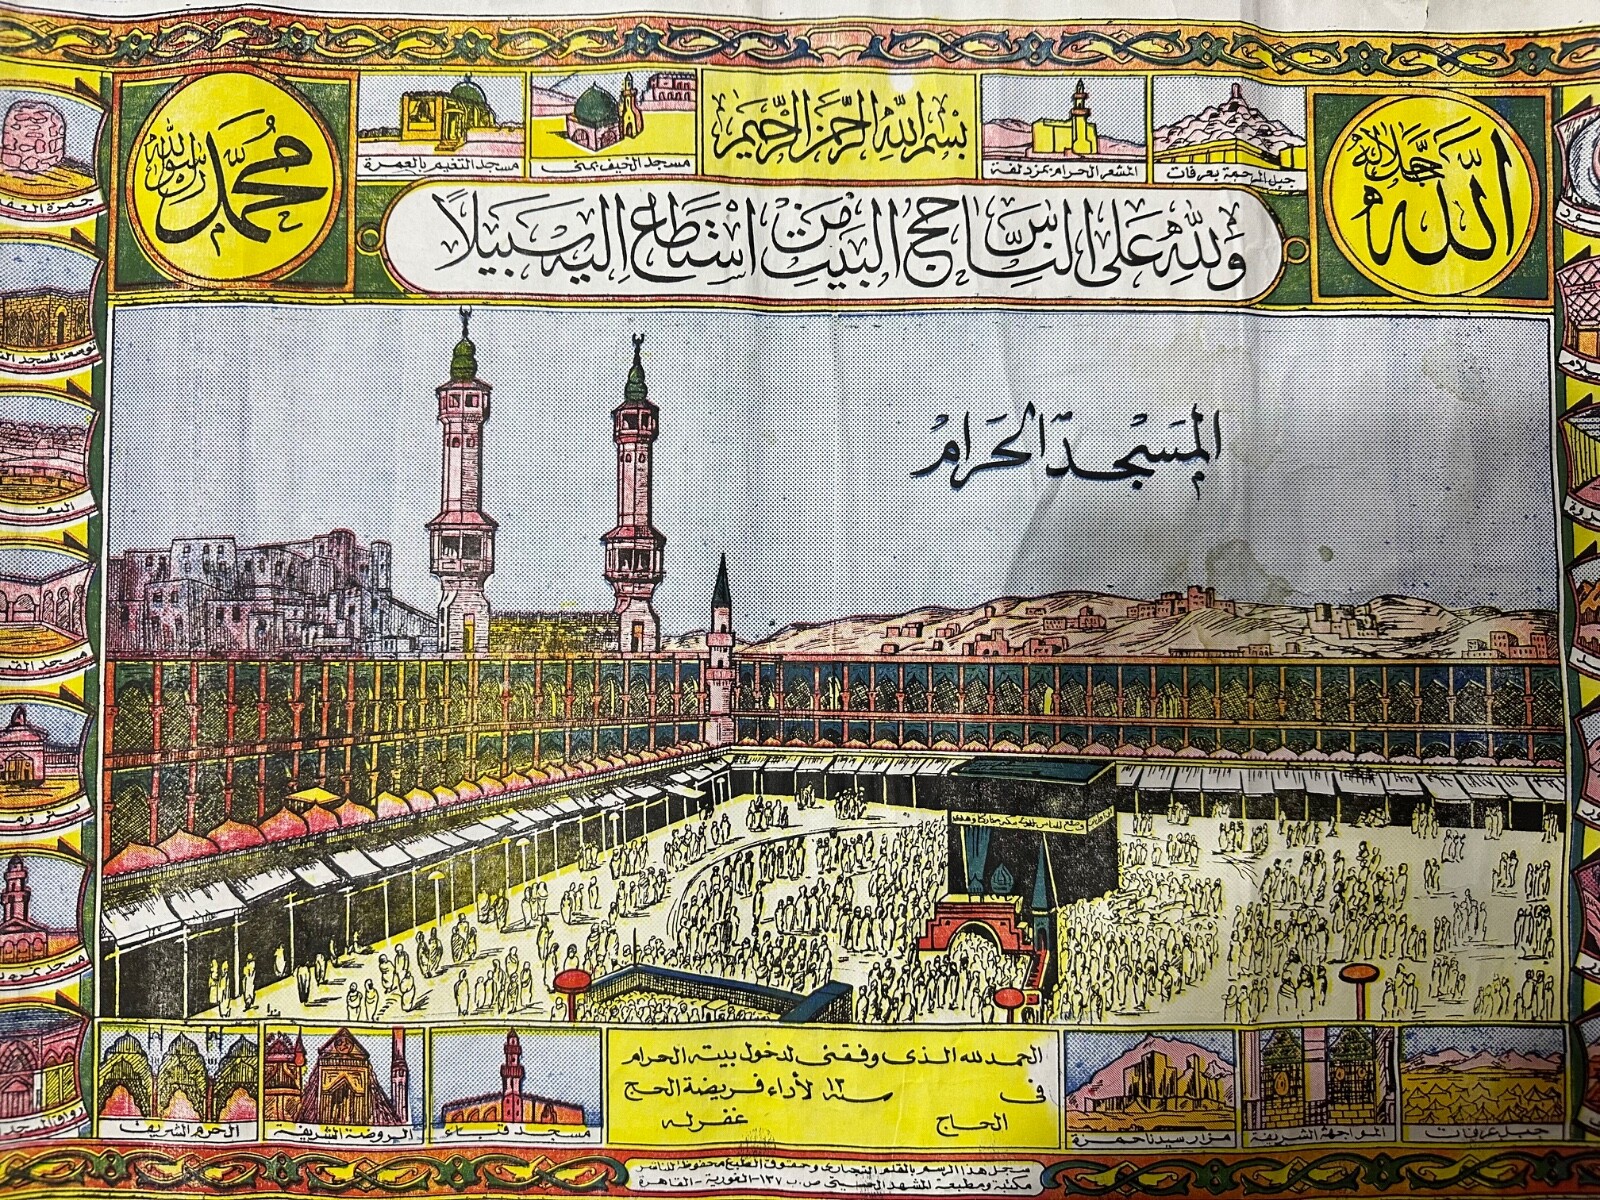 الله جل جلاله
بسم الله الرحمن الرحيم
محمد رسول الله
جبل الرحمة بعرفات
المشعر الحرام بمزدلفة
مسجد الخيف بمنى
مسجد التنعيم بالعمرة
ولله على الناس حج البيت من استطاع اليه سبيلا
المسجد الحرام
جمرة العقبة
توسعة المسجد
مسجد
الحمد لله الذى وفقنى لدخول بيته الحرام
فى سنة ١٣ لأداء فريضة الحج
الحاج غفر له
جبل عرفات
المواجهة الشريفة
مزار سيدنا حمزة
مسجد قباء
الروضة الشريفة
الحرم الشريف
مسجل هذا الرسم بالقلم التجارى وحقوق الطبع محفوظة للناشر
مكتبة ومطبعة المشهد الحسينى ص.ب ١٣٧ - الغورية - القاهرة